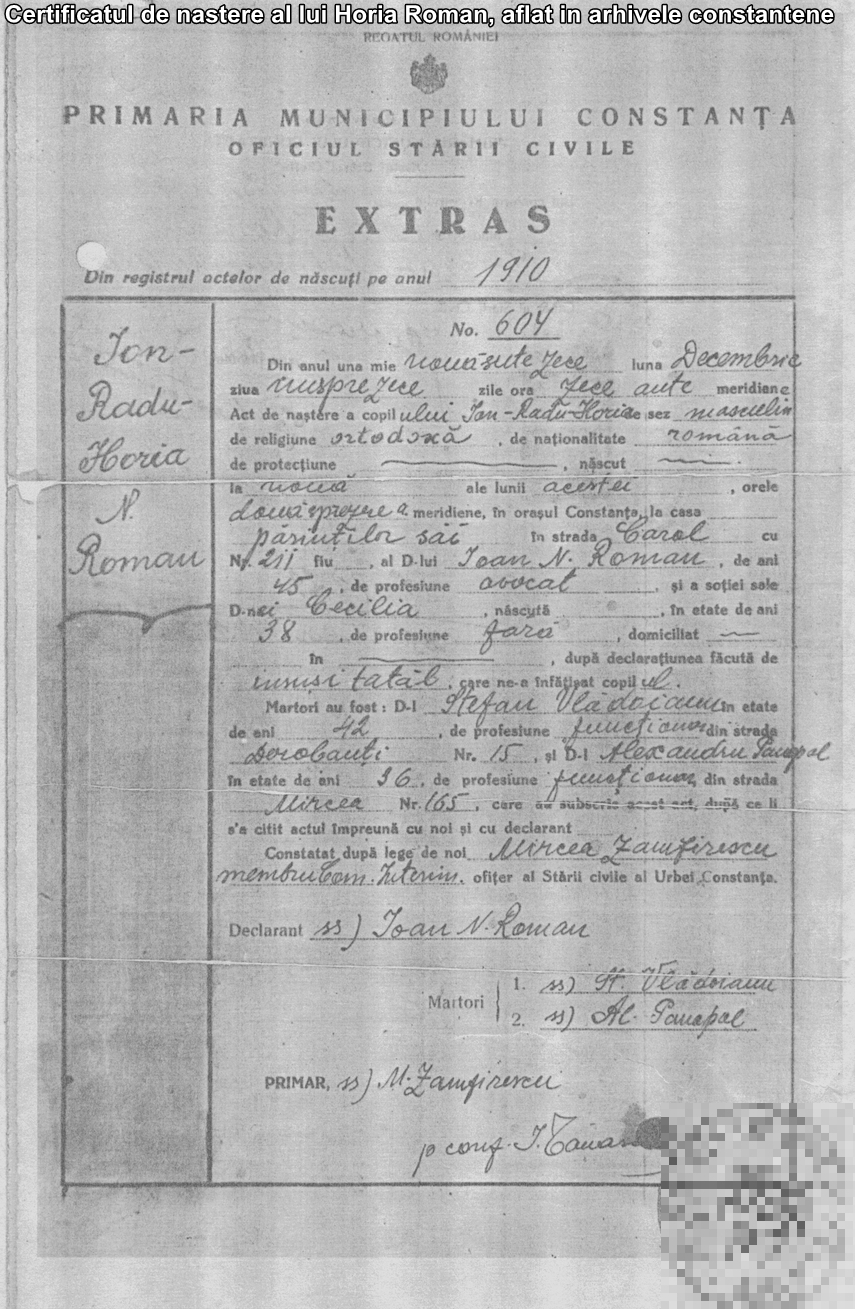 Certificatul de nastere al lui Horia Roman, aflat in arhivele constantene
REGATUL ROMÂNIEI
PRIMARIA MUNICIPIULUI CONSTANȚA
OFICIUL STĂRII CIVILE
EXTRAS
Din registrul actelor de născuți pe anul 1910
Ion-
Radu-
Horia
N.
Roman
No. 604
Din anul una mie nouăsute zece luna Decembrie
ziua unsprezece zile ora zece ante meridiane
Act de naștere a copilului Ion-Radu-Horia de sez masculin
de religiune ortodoxă, de naționalitate română
de protecțiune, născut
la nouă ale lunii acestei, orele
douăsprezece a meridiane, în orașul Constanța, la casa
părinților săi în strada Carol cu
Nr. 211 fiu, al D-lui Ioan N. Roman, de ani
45, de profesiune avocat, și a soției sale
D-nei Cecilia, născută, în etate de ani
38, de profesiune fără, domiciliat
în, după declarațiunea făcută de
însuși tatăl, care ne-a înfățișat copilul.
Martori au fost: D-l Stefan Vlădoianu în etate
de ani 42, de profesiune funcționar din strada
Dorobanți Nr. 15, și D-l Alexandru Panapol
în etate de ani 36, de profesiune funcționar, din strada
Mircea Nr. 165, care au subscris acest act, după ce li
s'a citit actul împreună cu noi și cu declarant
Constatat după lege de noi Mircea Zamfirescu
membru Com. Interim. ofițer al Stării civile al Urbei Constanța.
Declarant ss) Ioan N. Roman
Martori
1. ss) St. Vlădoianu
2. ss) Al. Panapol
PRIMAR, ss) M. Zamfirescu
p conf. I.